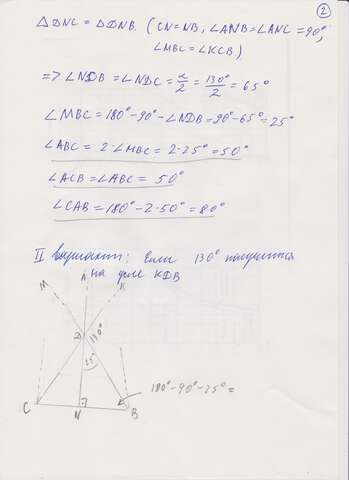 2
△DNC = △DNB. (CN=NB, ∠ANB=∠ANC=90°,
∠MBC=∠KCB)
=> ∠NDB = ∠NDC = α/2 = 130°/2 = 65°
∠MBC = 180°-90°-∠NDB = 90°-65° = 25°
∠ABC = 2·∠MBC = 2·25° = 50°
∠ACB = ∠ABC = 50°
∠CAB = 180°-2·50° = 80°
II вариант: Если 130° получится
на угле KDB
M A K
D 130°
25°
180°-90°-25°=
C N B